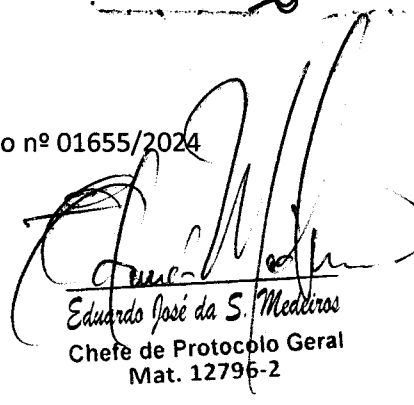 o nº 01655/2024
Eduardo José da S. Medeiros
Chefe de Protocolo Geral
Mat. 12796-2